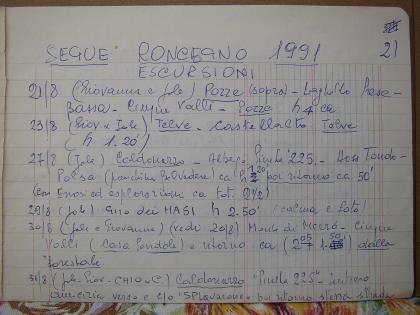 21
SEGUE RONCEGNO 1991
ESCURSIONI
21/8 (Giovanna e Jole) Pozze (sopra) - Laghetto Prese-
Bassa - Cinque Valli - Pozze h 4 ca
23/8 (Giov e Jole) Telve - Castellalto Telve
(h 1.20')
27/8 (Jole) Caldonazzo - Alber. Pineta 225 - Dos Tondo-
Belvedere) ca per ritorno ca 50'
(con ed esplorazioni ca tot. 2½)
29/8 (Jole) Giro dei MASI h 2.50' (calma e foto)
30/8 (Jole e Giovanna) (vedi 20/8) Monte di Mezzo - Cinque
Valli (Casa e ritorno ca dalla
forestale
31/8 (Jole-Giov- Caldonazzo "Pineta 225" - sentiero
amicizia verso e c/o per ritorno stessa strada